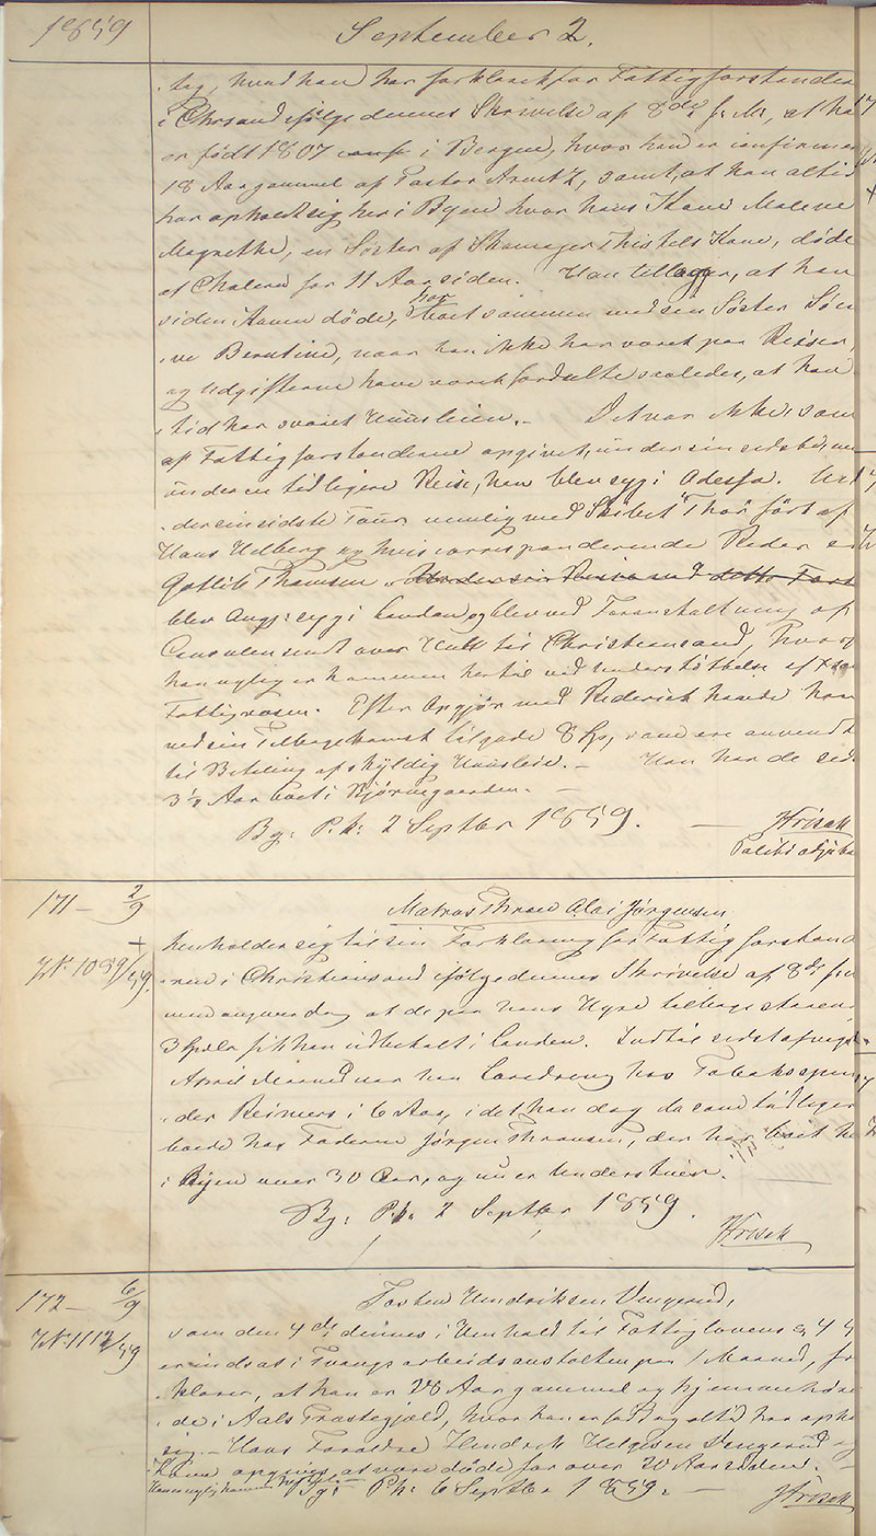 1859
September 2.
tag, hvad han har forklaret for Fattigforstander
i Chrsand ifølge dennes Skrivelse af 8de f. M., at ha
er født 1807 i Bergen, hvor han er confirmer
18 Aar gammel af Pastor Arentz, samt, at han altid
har opholdt sig her i Byen hvor hans Kone Malene
Magrethe, en Søster af Skomager Thistels Kone, døde
af Cholera for 11 Aar siden. Han tillægger, at han
siden Konen døde, har boet sammen med sin Søster
Berntine, naar han ikke har været paa Reiser,
og Udgifterne have været fordeelte saaledes, at han
tid har svaret Huusleien. - Det var ikke, som
af Fattigforstanderne opgivet, under sin sidste, men
under en tidligere Reise, han blev syg i Odessa.
der sin sidste Tour nemlig med Skibet "Thor" ført af
Hans Helberg og hvis correspenderende Reder er
Gotlib Thomsen Under sin Reise med dette Fart
blev Angj: syg i London, og blev ved Foranstaltning af
Consulen sendt over Hull til Christiansand, hvorf
han nylig er kommen hertil ved Understøttelse af
Fattigvæsen. Efter Opgjør med Rederiet havde han
ved sin Tilbagekomst tilgode 8 Sp, som ere anvendt
til Betaling af skyldig Huusleie. - Han har de sid
3½ Aar boet i Bjørnegaarden. -
Bg: P.k: 2 Septbr 1859. - Krisak
171 - 2/9
Matros Thron Olai Jørgensen
+
henholder sig til sin Forklaring for Fattigforstand
JN. 1089/59.
eren i Christiansand ifølge dennes Skrivelse af 8de f.
med angivende, at de paa hans Hyre tilbagestaaen
3 Spdlr fik han udbetalt i London. Indtil sidstafvigt
April Maaned var han Læredreng hos Tobaksspin
der Reimers i 6 Aar, idet han dog da som tidliger
boede hos Faderen Jørgen Thronsen, der har boet he
i Byen over 30 Aar, og nu er Understøien.
Bg: P.k. 2 Septbr 1859.
Krisak
172 - 6/9
Torsten Hendriksen Vengerud,
JN. 1112/59
som den 4de dennes i Henhold til Fattiglovens § 44
er indsat i Tvangsarbeidsanstalten paa 1 Maaned, for
klarer, at han er 28 Aar gammel og hjemmehøren
de i Aals Præstegjæld, hvor han er født og altid har opho
sig. - Hans Forældre Hendrik Helgesen Vengerud og
Kone opgives at være døde for over 20 Aar siden. -
Han er nylig kommen til Byen. - Bg: P.k: 6 Septbr 1859. - Krisak